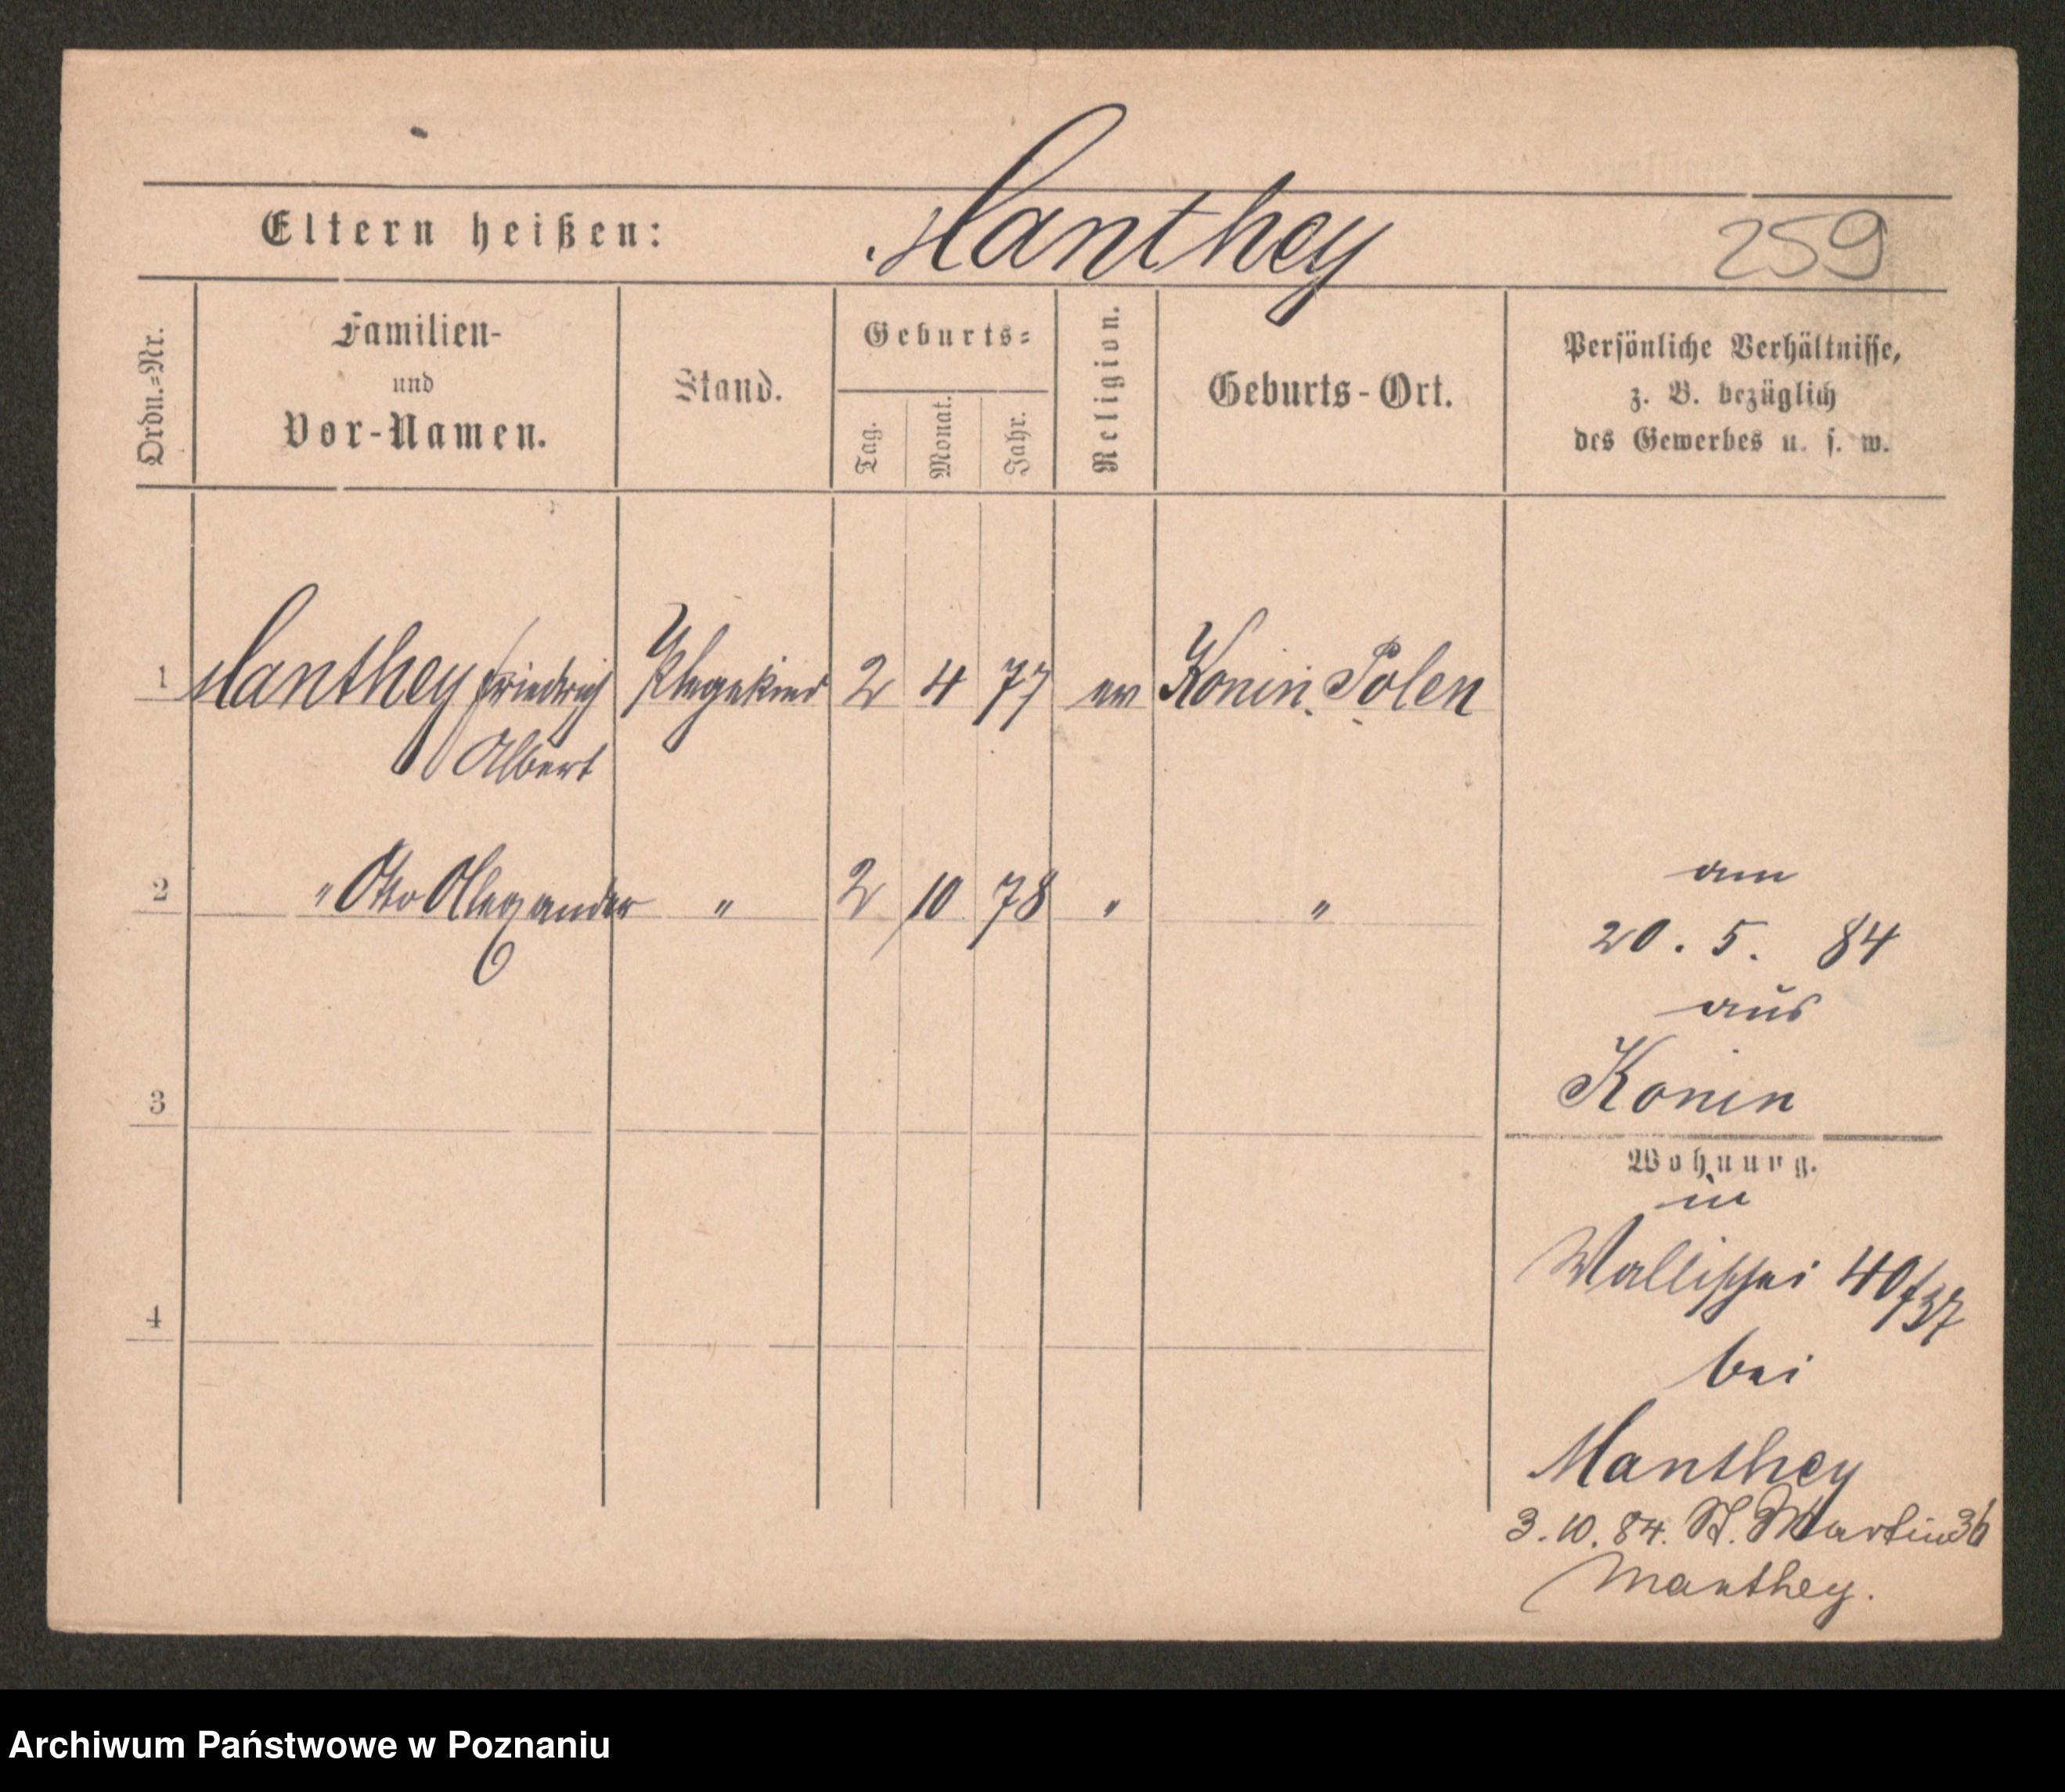 Eltern heißen: Manthey 259
Ordn.=Nr.
Familien-
und
Vor-Namen.
Stand.
Geburts=
Tag.
Monat.
Jahr.
Religion.
Geburts-Ort.
Persönliche Verhältnisse,
z. B. bezüglich
des Gewerbes u. s. w.
1 Manthey Friedrich Pflegekind 2 4 77 ev Konin Polen
Albert
2 " Otto Alexander " 2 10 78 " "
am
20. 5. 84
aus
Konin
3
Wohnung.
in
Wallischei 40/37
4
bei
Manthey
3. 10. 84. St. Martin 36
Manthey.
Archiwum Państwowe w Poznaniu